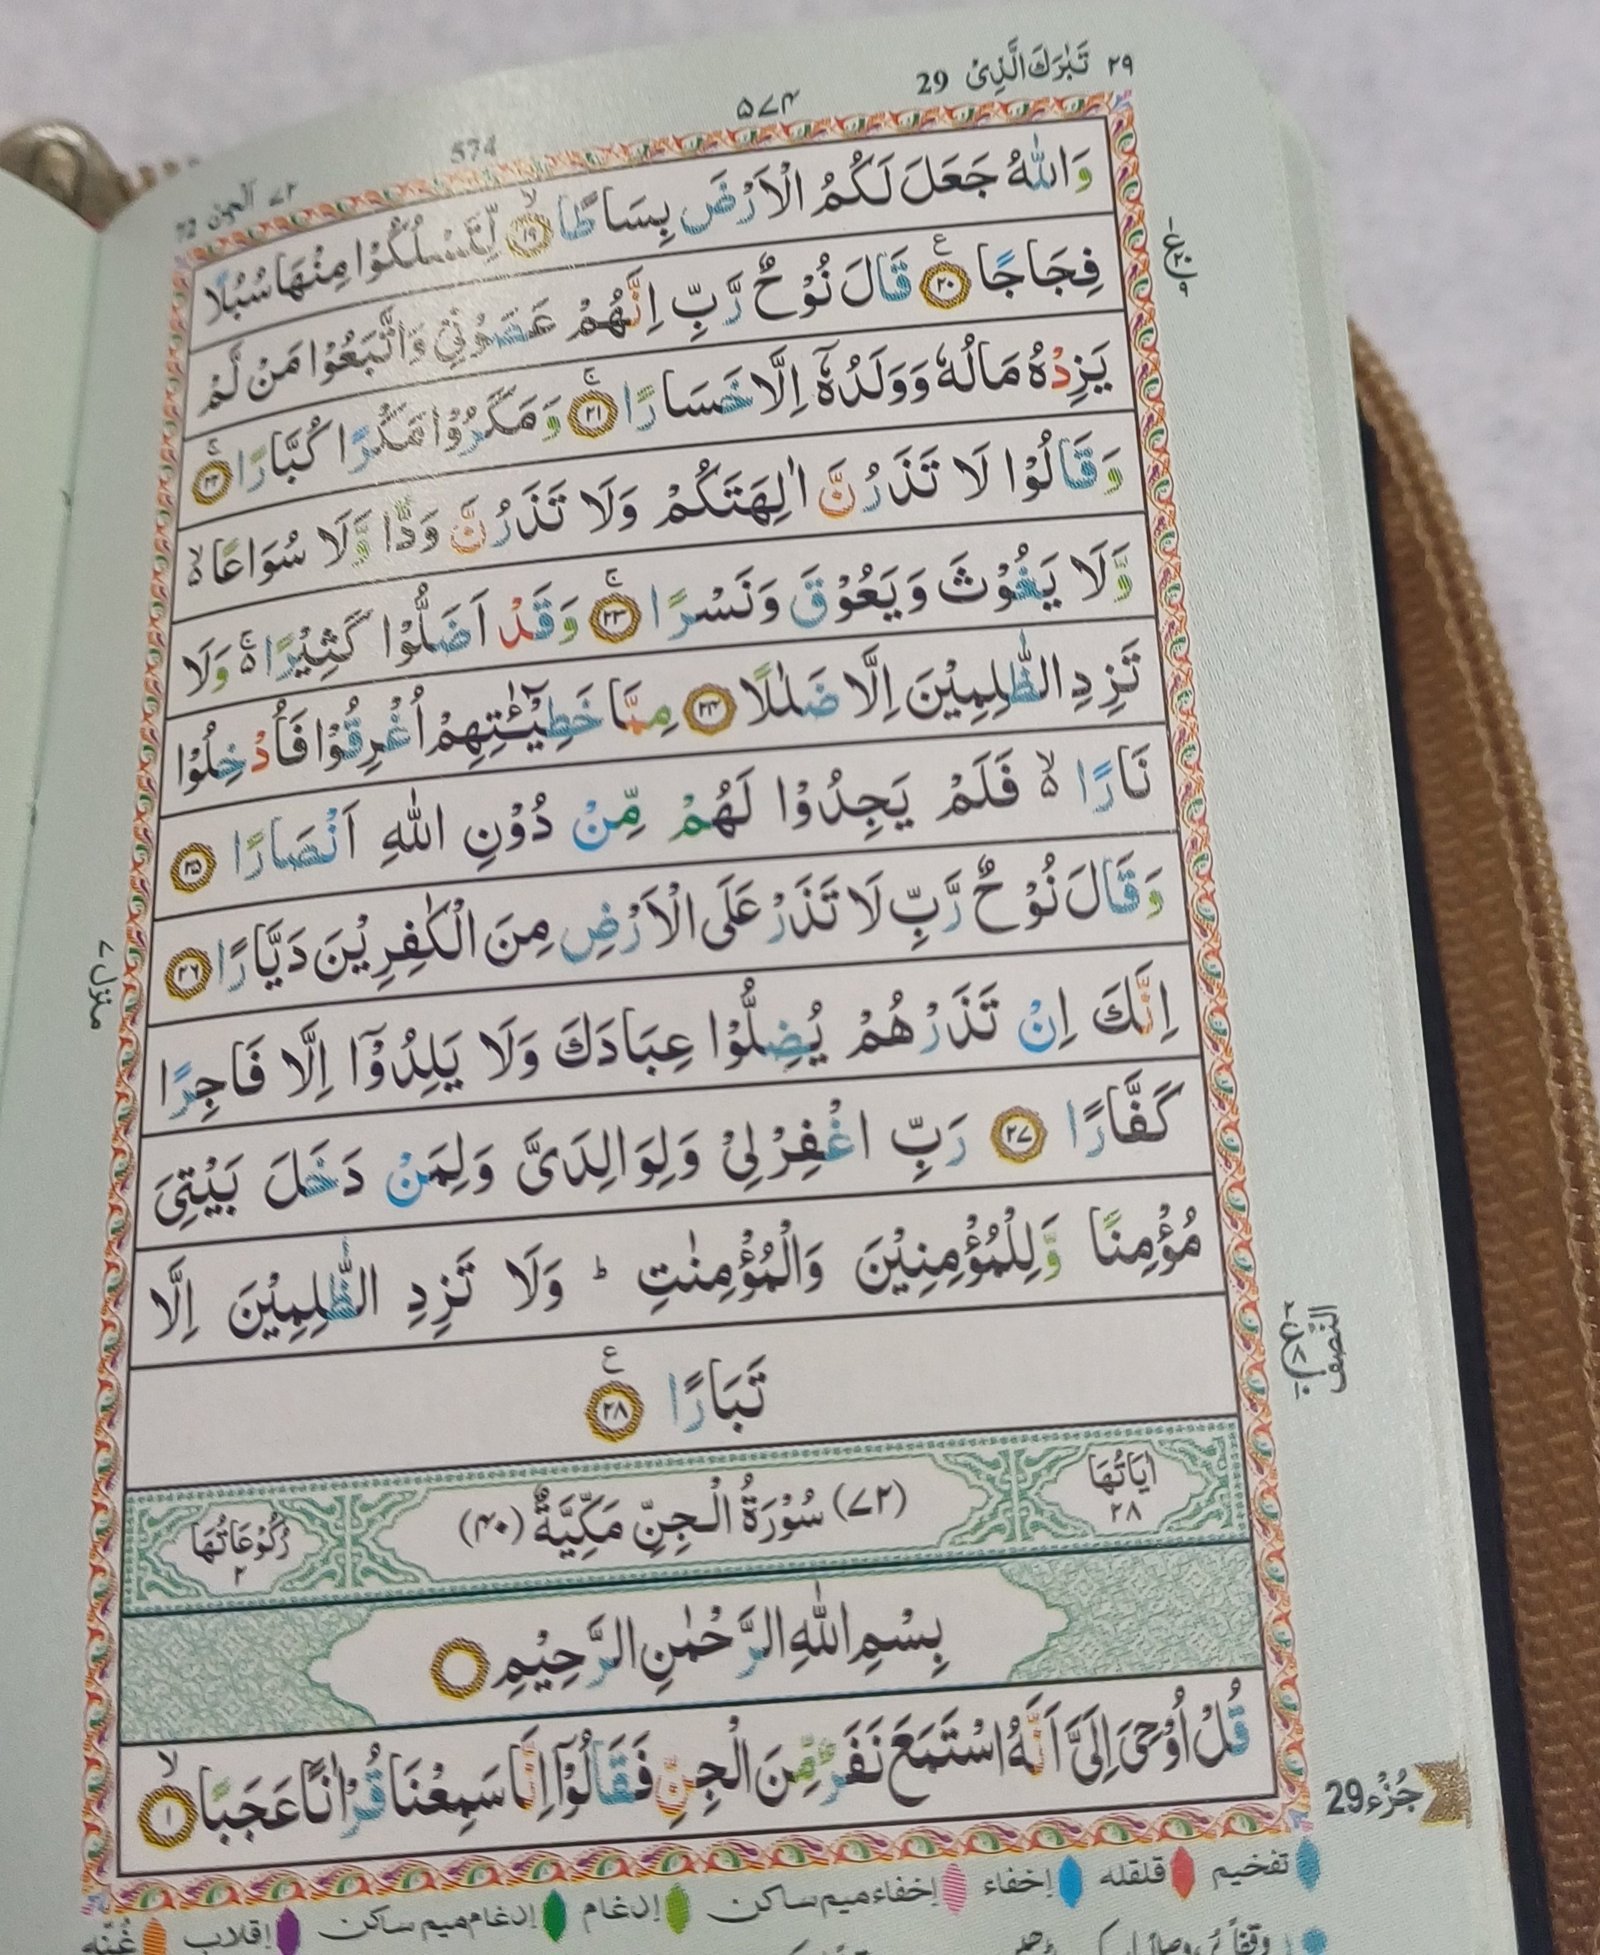 ٢٩ تَبٰرَكَ الَّذِىْ 29
۵۷۴
574
۷۲ الجن 72
وَاللّٰهُ جَعَلَ لَكُمُ الْاَرْضَ بِسَاطًا ۙ﴿۱۹﴾ لِّتَسْلُكُوْا مِنْهَا سُبُلًا
فِجَاجًا ﴿۲۰﴾ ع قَالَ نُوْحٌ رَّبِّ اِنَّهُمْ عَصَوْنِيْ وَاتَّبَعُوْا مَنْ لَّمْ
يَزِدْهُ مَالُهٗ وَوَلَدُهٗۤ اِلَّا خَسَارًا ۚ﴿۲۱﴾ وَمَكَرُوْا مَكْرًا كُبَّارًا ۚ﴿۲۲﴾
وَقَالُوْا لَا تَذَرُنَّ اٰلِهَتَكُمْ وَلَا تَذَرُنَّ وَدًّا وَّلَا سُوَاعًا ۙ۵
وَّلَا يَغُوْثَ وَيَعُوْقَ وَنَسْرًا ۚ﴿۲۳﴾ وَقَدْ اَضَلُّوْا كَثِيْرًا ۚ۵ وَلَا
تَزِدِ الظّٰلِمِيْنَ اِلَّا ضَلٰلًا ﴿۲۴﴾ مِمَّا خَطِيْٓـٰٔتِهِمْ اُغْرِقُوْا فَاُدْخِلُوْا
نَارًا ۙ۵ فَلَمْ يَجِدُوْا لَهُمْ مِّنْ دُوْنِ اللّٰهِ اَنْصَارًا ﴿۲۵﴾
وَقَالَ نُوْحٌ رَّبِّ لَا تَذَرْ عَلَى الْاَرْضِ مِنَ الْكٰفِرِيْنَ دَيَّارًا ﴿۲۶﴾
اِنَّكَ اِنْ تَذَرْهُمْ يُضِلُّوْا عِبَادَكَ وَلَا يَلِدُوْۤا اِلَّا فَاجِرًا
كَفَّارًا ﴿۲۷﴾ رَبِّ اغْفِرْ لِيْ وَلِوَالِدَىَّ وَلِمَنْ دَخَلَ بَيْتِىَ
مُؤْمِنًا وَّلِلْمُؤْمِنِيْنَ وَالْمُؤْمِنٰتِ ؕ وَلَا تَزِدِ الظّٰلِمِيْنَ اِلَّا
تَبَارًا ﴿۲۸﴾ ع
اٰيَاتُهَا ۲۸
(۷۲) سُوْرَةُ الْجِنِّ مَكِّيَّةٌ (۴۰)
رُكُوْعَاتُهَا ۲
بِسْمِ اللّٰهِ الرَّحْمٰنِ الرَّحِيْمِ
قُلْ اُوْحِىَ اِلَىَّ اَنَّهُ اسْتَمَعَ نَفَرٌ مِّنَ الْجِنِّ فَقَالُوْۤا اِنَّا سَمِعْنَا قُرْاٰنًا عَجَبًا ۙ﴿۱﴾
منزل ۷
النّصف
جُزْء 29
تفخيم قلقله إخفاء إخفاء ميم ساكن إدغام إدغام ميم ساكن إقلاب غُنّه